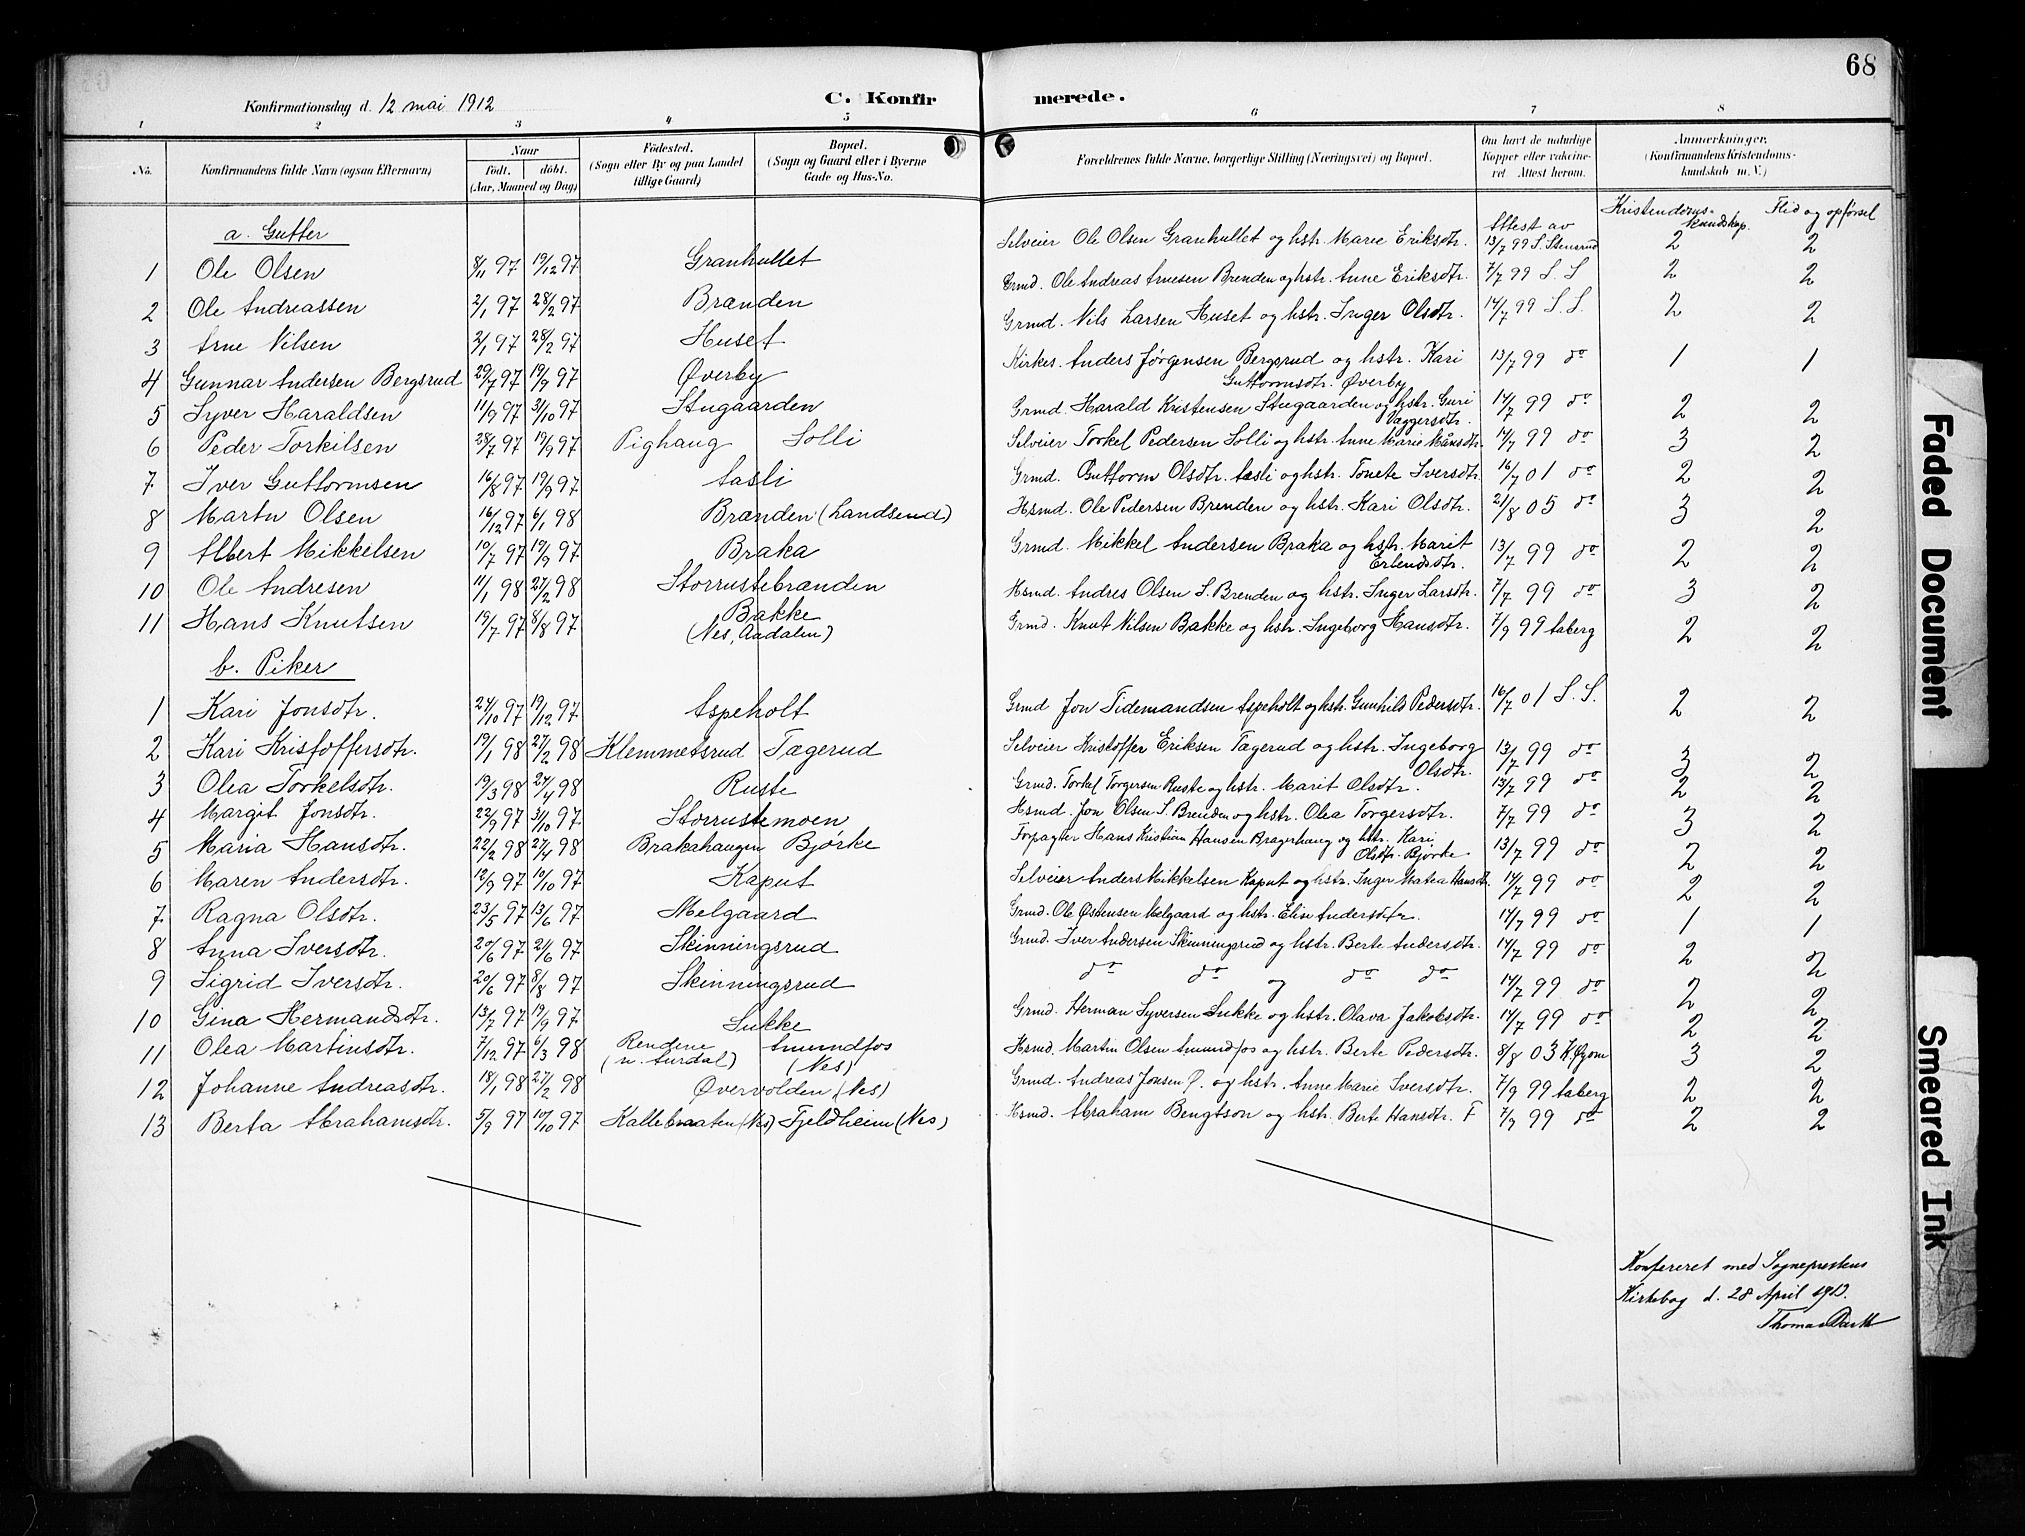 68
Konfirmationsdag d. 12 mai 1912
C. Konfirmerede.
1 2 3 4 5 6 7 8
No. Konfirmandens fulde Navn (ogsaa Efternavn) Naar født. døbt. (Aar, Maaned og Dag) Fødested. (Sogn eller By og paa Landet tillige Gaard) Bopæl. (Sogn og Gaard eller i Byerne Gade og Hus-No. Forældrenes fulde Navne, borgerlige Stilling (Næringsvei) og Bopæl. Om havt de naturlige Kopper eller vakcineret. Attest herom. Anmerkninger. (Konfirmandens Kristendomskundskab m. V.)
Attest av Kristendomskundskap. Flid og opførsel
a. Gutter
1 Ole Olsen 8/11 97 19/12 97 Granhullet Selveier Ole Olsen Granhullet og hstr. Marie Eriksdtr. 13/7 99 S. Stensrud 2 2
2 Ole Andreassen 2/1 97 28/2 97 Brænden Grmd. Ole Andreas Arnesen Brenden og hstr. Anne Eriksdtr. 7/7 99 S. S 2 2
3 Arne Nilsen 2/1 97 28/2 97 Huset Grmd. Nils Larsen Huset og hstr. Inger Olsdtr. 14/7 99 S. S. 2 2
4 Gunnar Andersen Bergsrud 29/7 97 19/9 97 Øverby Kirkes. Anders Jørgensen Bergsrud og hstr. Kari Guttormsdtr. Øverby 13/7 99 do 1 1
5 Syver Haraldsen 11/9 97 3/10 97 Stugaarden Grmd. Harald Kristensen Stugaarden og hstr. Guri Vaggersdtr. 14/7 99 do 2 2
6 Peder Torkilsen 28/7 97 19/9 97 Pighaug Solli Selveier Torkel Pedersen Solli og hstr. Anne Marie Månsdtr. 14/7 99 do 3 2
7 Iver Guttormsen 16/8 97 19/9 97 Aasli Grmd. Guttorm Olsdtr. Aasli og hstr. Tonete Iversdtr. 16/7 01 do 2 2
8 Martin Olsen 16/12 97 6/1 98 Brænden (Landsend) Hsmd. Ole Pedersen Brenden og hstr. Kari Olsdtr. 21/8 05 do 3 2
9 Albert Mikkelsen 10/7 97 19/9 97 Braka Grmd. Mikkel Andersen Braka og hstr. Marit Erlendsdtr. 13/7 99 do 2 2
10 Ole Andresen 11/1 98 27/2 98 Storrustebranden Hsmd. Andres Olsen S. Brenden og hstr. Inger Larsdtr. 7/7 99 do 3 2
11 Hans Knutsen 19/7 97 8/8 97 Bakke (Nes, Aadalen) Grmd. Knut Nilsen Bakke og hstr. Ingeborg Hansdtr. 7/9 99 Aaberg 2 2
b. Piker
1 Kari Jonsdtr. 24/10 97 19/12 97 Aspeholt Grmd Jon Tidemandsen Aspeholt og hstr. Gunhild Pedersdtr. 16/7 01 S. S. 2 2
2 Kari Kristoffersdtr. 19/1 98 27/2 98 Klemmetsrud Tægerud Selveier Kristoffer Eriksen Tægerud og hstr. Ingeborg Olsdtr. 13/7 99 do 3 2
3 Olea Torkelsdtr. 19/3 98 24/4 98 Ruste Grmd. Torkel Torgersen Ruste og hstr. Marit Olsdtr. 13/7 99 do 2 2
4 Margit Jonsdtr. 22/9 97 3/10 97 Storrustemoen Hsmd. Jon Olsen S. Brenden og hstr. Olea Torgersdtr. 7/7 99 do 3 2
5 Maria Hansdtr. 22/2 98 27/4 98 Brakahaugen Bjørke Forpagter Hans Kristian Hansen Bragerhaug og hstr. Kari Olsdtr. Bjørke 13/7 99 do 2 2
6 Maren Andersdtr. 12/9 97 10/10 97 Kaput Selveier Anders Mikkelsen Kaput og hstr. Inger Matea Hansdtr. 14/7 99 do 2 2
7 Ragna Olsdtr. 23/5 97 13/6 97 Melgaard Grmd. Ole Østensen Melgaard og hstr. Elise Andersdtr. 14/7 99 do 1 1
8 Anna Iversdtr. 20/6 97 2/6 97 Skinningsrud Grmd. Iver Andersen Skinningsrud og hstr. Berte Andersdtr. 14/7 99 do 2 2
9 Sigrid Iversdtr. 20/6 97 8/8 97 Skinningsrud do do og do do 14/7 99 do 2 2
10 Gina Hermandsdtr. 13/7 97 19/9 97 Sukke Grmd. Herman Syversen Sukke og hstr. Olava Jakobsdtr. 14/7 99 do 2 2
11 Olea Martinsdtr. 7/12 97 6/3 98 Rendene (n. Aurdal) Amundfos (Nes) Hsmd. Martin Olsen Amundfos og hstr. Berte Pedersdtr. 8/8 03 K. Øyom 3 2
12 Johanne Andreasdtr. 18/1 98 27/2 98 Øvervolden (Nes) Grmd. Andreas Jonsen Ø. og hstr. Anne Marie Iversdtr. 7/9 99 Aaberg 2 2
13 Berta Abrahamsdtr. 5/9 97 10/10 97 Kallebraaten (Nes) Fjeldheim (Nes) Hsmd. Abraham Bengtson og hstr. Berte Hansdtr. F 7/9 99 do 2 2
Konfereret med Sogneprestens
Kirkebog d. 28 April 1913.
Thomas
Faded Document
Smeared Ink